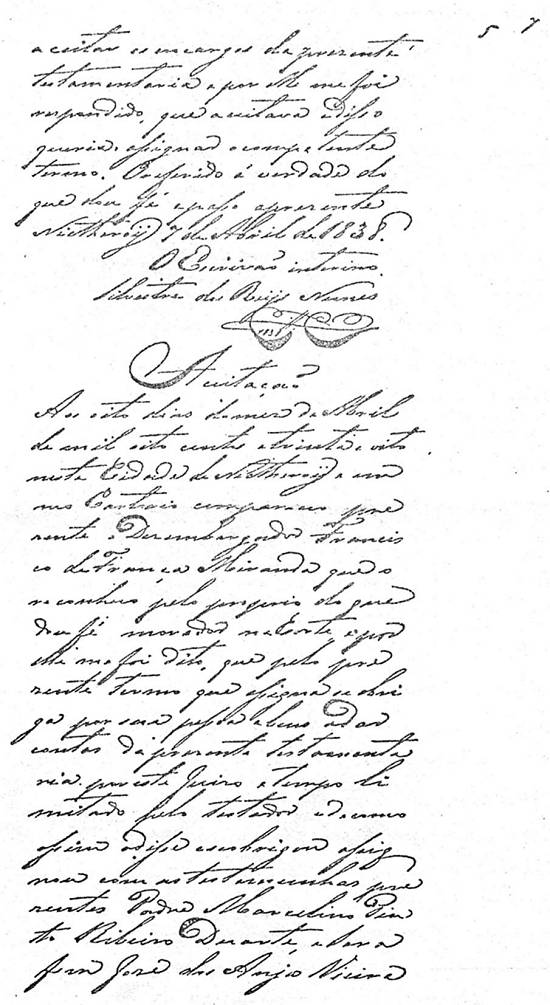 5 7
aceitar os encargos da prezente
testamentaria e por elle me foi
respondido, que aceitava e disso
queria assignar o competente
termo. O referido é verdade do
que dou fé e passo a prezente
Nictheroÿ 7 de Abril de 1838.
O Escrivaõ interino.
Silvestre dos Reys Nunes
Aceitaçaõ
Aos oito dias do mez de Abril
de mil oito cento e trinta e oito
nesta Cidade de Nictheroÿ e em
meu Cartorio compareceo pre
zente o Dezembargador Francis
co de França Miranda que o
reconheço pelo proprio do que
dou fé morador na Corte, e por
elle me foi dito, que pelo pre
zente termo que assigna se obri
ga por sua pessoa e bens a dar
contas da prezente testamenta
ria por este Juizo e tempo li
mitado pelo testador e de como
assim o disse e se obrigou assig
nou com as testemunhas pre
zentes Padre Marcelino Pin
to Ribeiro Duarte, e
José dos Anjos Vieira